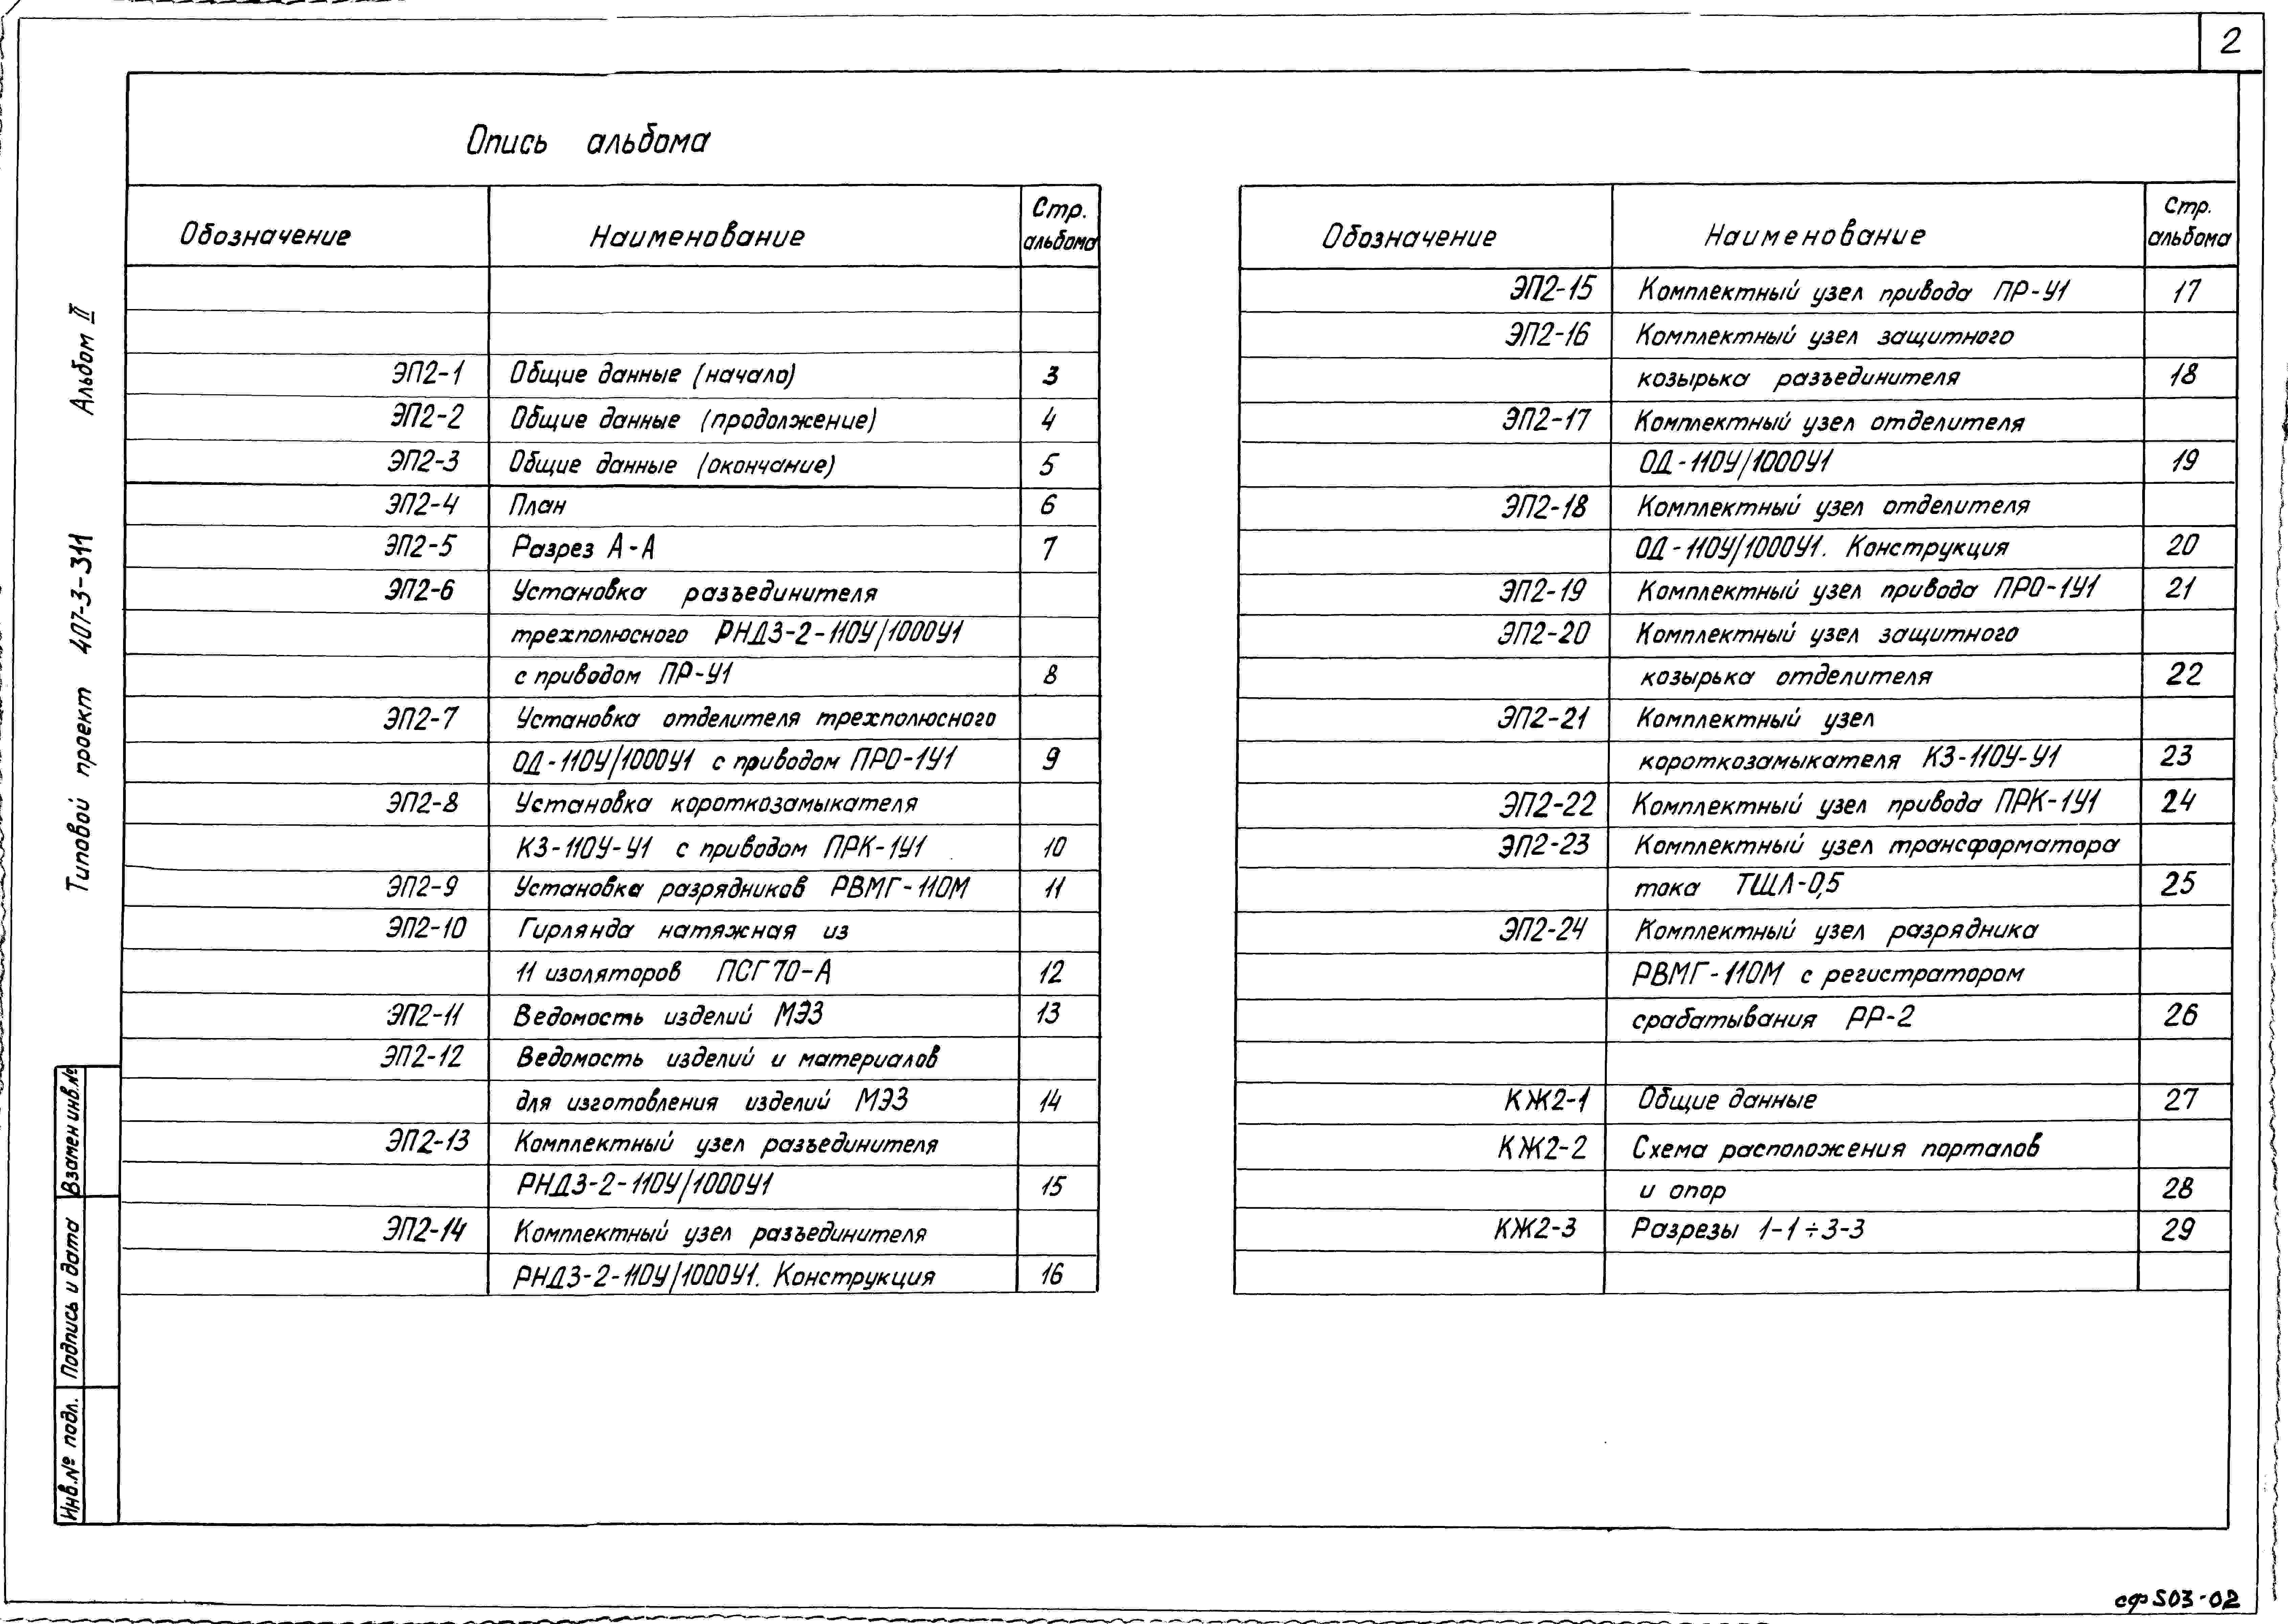 2
Опись альбома
Обозначение Наименование Стр. альбома
ЭП2-1 Общие данные (начало) 3
ЭП2-2 Общие данные (продолжение) 4
ЭП2-3 Общие данные (окончание) 5
ЭП2-4 План 6
ЭП2-5 Разрез А-А 7
ЭП2-6 Установка разъединителя
трехполюсного РНДЗ-2-110У/1000У1
с приводом ПР-У1 8
ЭП2-7 Установка отделителя трехполюсного
ОД-110У/1000У1 с приводом ПРО-1У1 9
ЭП2-8 Установка короткозамыкателя
КЗ-110У-У1 с приводом ПРК-1У1 10
ЭП2-9 Установка разрядников РВМГ-110М 11
ЭП2-10 Гирлянда натяжная из
11 изоляторов ПСГ70-А 12
ЭП2-11 Ведомость изделий МЭЗ 13
ЭП2-12 Ведомость изделий и материалов
для изготовления изделий МЭЗ 14
ЭП2-13 Комплектный узел разъединителя
РНДЗ-2-110У/1000У1 15
ЭП2-14 Комплектный узел разъединителя
РНДЗ-2-110У/1000У1. Конструкция 16
Обозначение Наименование Стр. альбома
ЭП2-15 Комплектный узел привода ПР-У1 17
ЭП2-16 Комплектный узел защитного
козырька разъединителя 18
ЭП2-17 Комплектный узел отделителя
ОД-110У/1000У1 19
ЭП2-18 Комплектный узел отделителя
ОД-110У/1000У1. Конструкция 20
ЭП2-19 Комплектный узел привода ПРО-1У1 21
ЭП2-20 Комплектный узел защитного
козырька отделителя 22
ЭП2-21 Комплектный узел
короткозамыкателя КЗ-110У-У1 23
ЭП2-22 Комплектный узел привода ПРК-1У1 24
ЭП2-23 Комплектный узел трансформатора
тока ТШЛ-0,5 25
ЭП2-24 Комплектный узел разрядника
РВМГ-110М с регистратором
срабатывания РР-2 26
КЖ2-1 Общие данные 27
КЖ2-2 Схема расположения порталов
и опор 28
КЖ2-3 Разрезы 1-1÷3-3 29
Типовой проект 407-3-311 Альбом II
Инв.№ подл. Подпись и дата Взамен инв.№
сф503-02